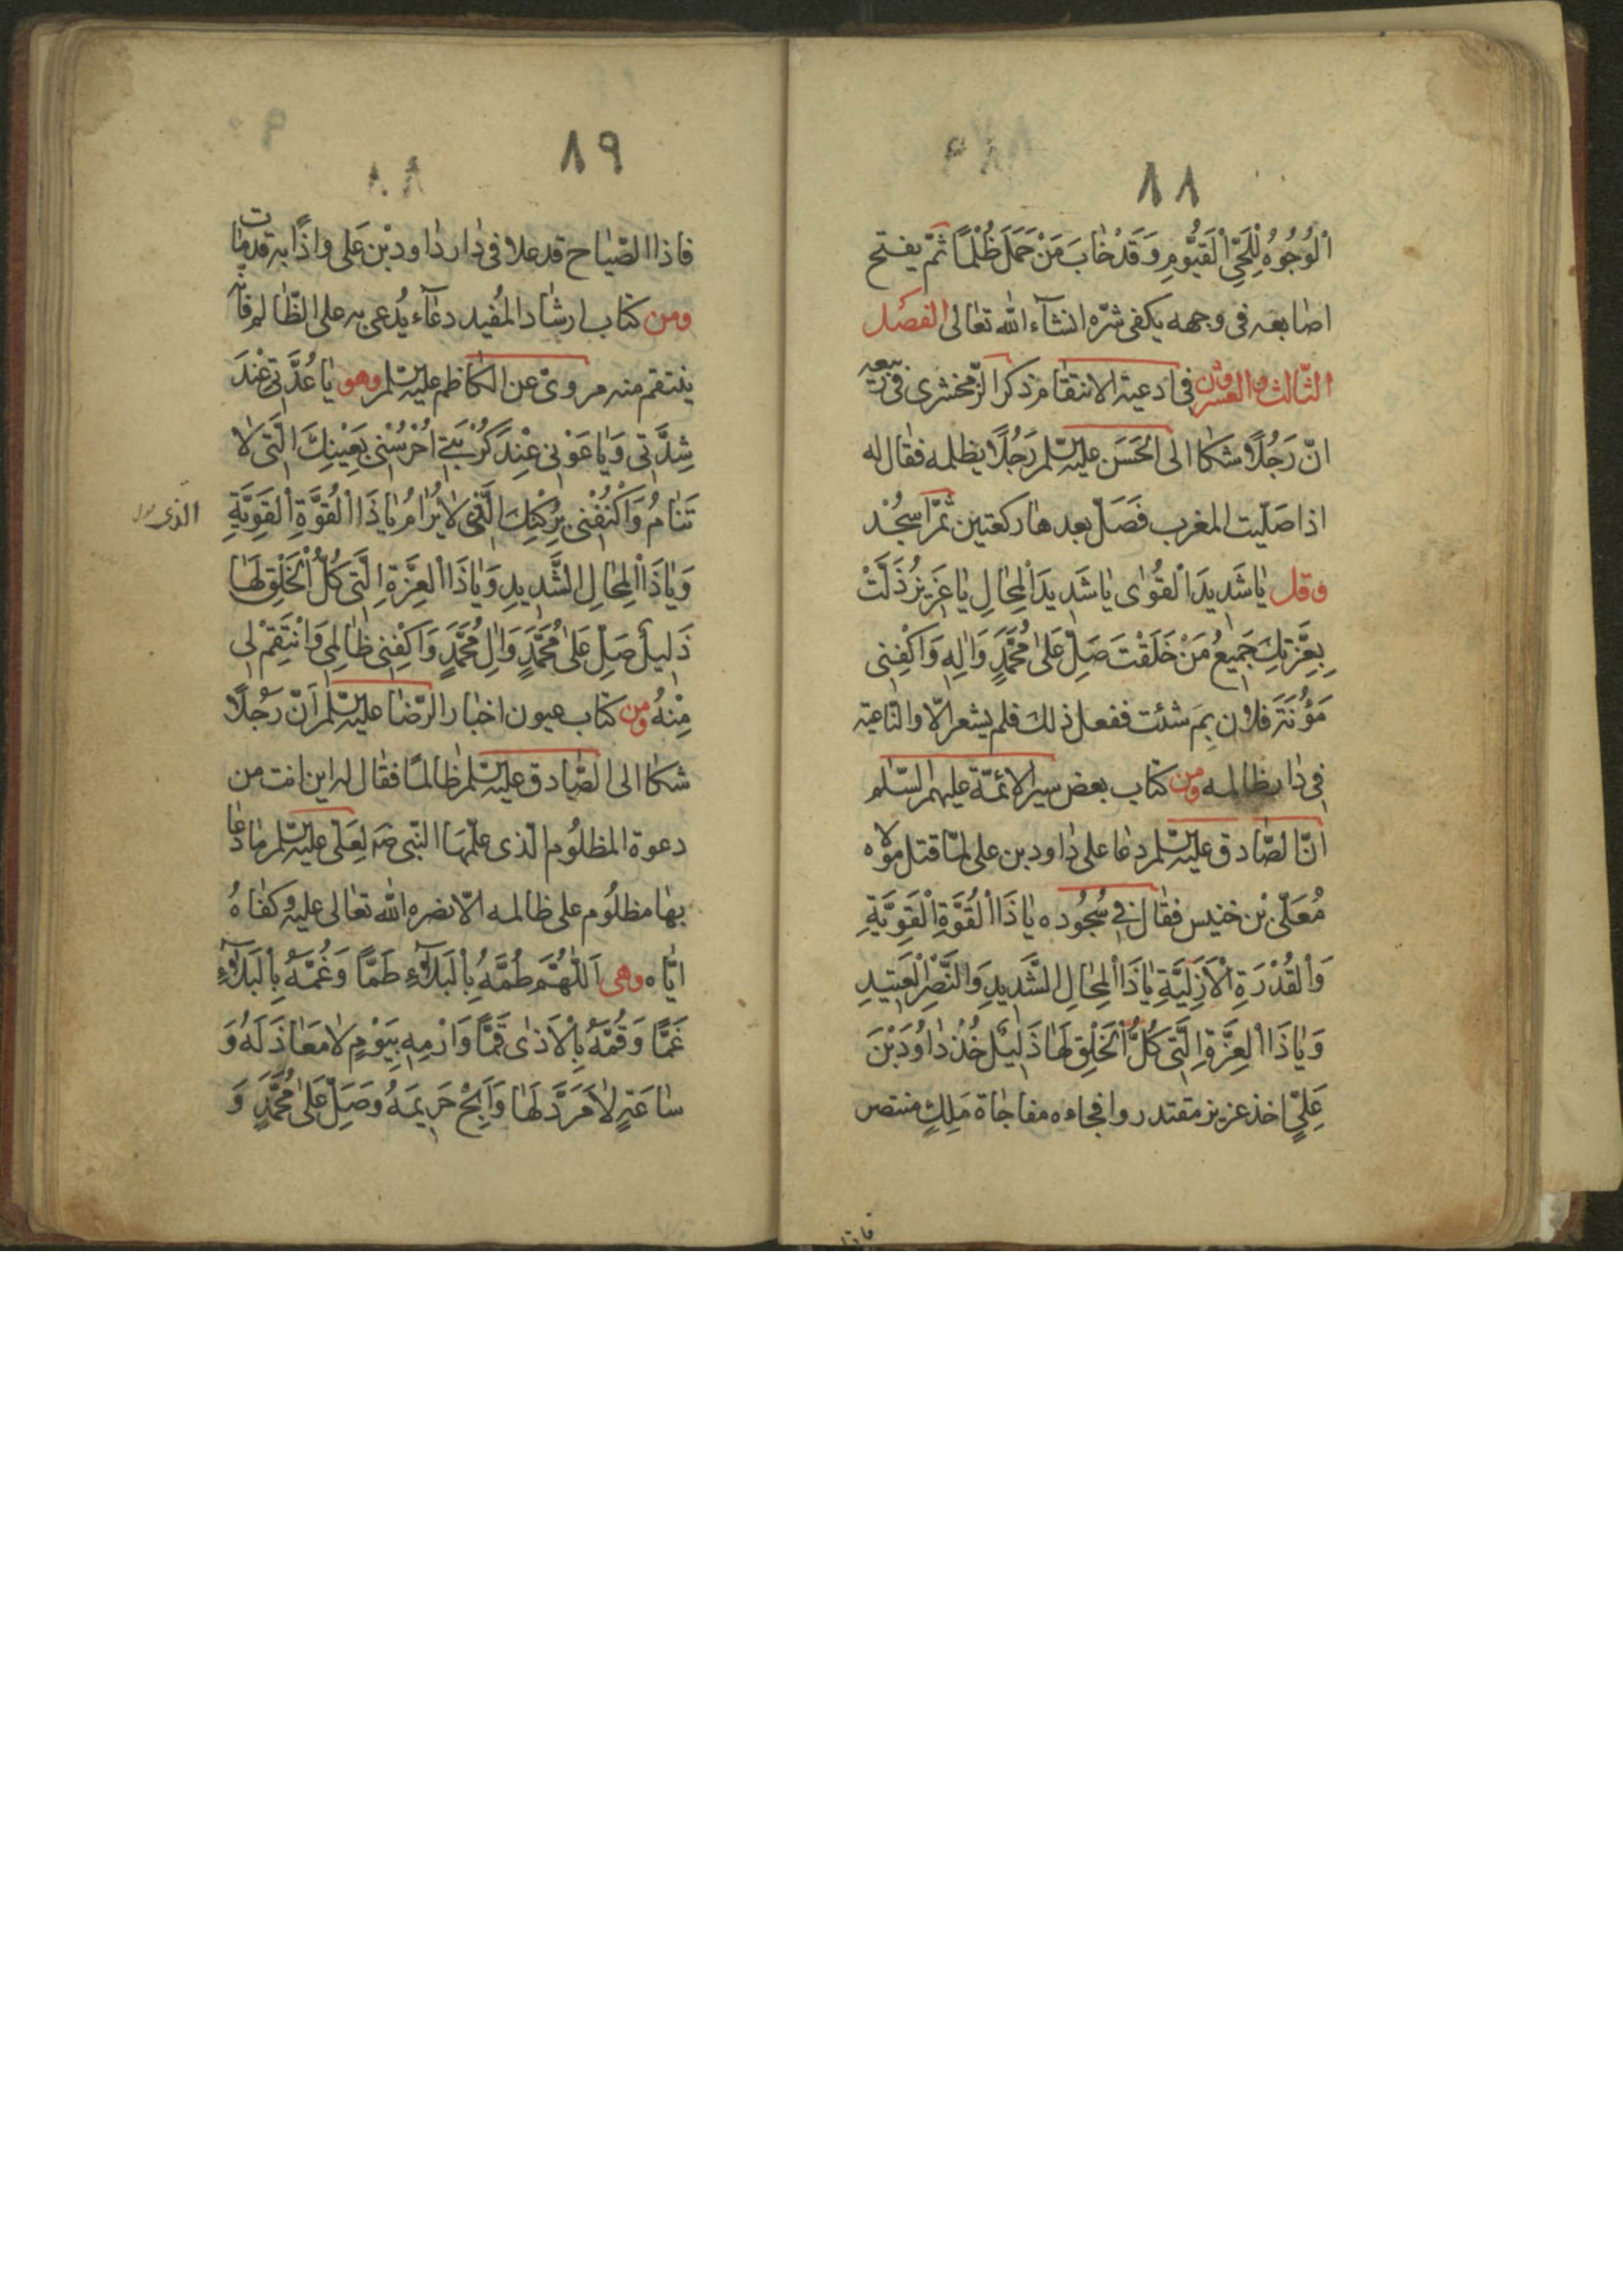 ٨٨
اْلوُجُوُهُ لِلْحَيِّ اْلقَيُّومِ وَقَدْ خٰابَ مَنْ حَمَلَ ظُلْمًا ثمّ يفتح
اصٰابعه فى وجهه يكفى شرّه انشآء الله تعٰالى الفصل
الثّالث والعشرون فى ادعية الانتقٰام ذكر الزّمخشرى فى ربيعه
انّ رَجُلًا شكٰا الى الحَسَن عليه السّلم رَجُلًا يظلمه فقٰال له
اذا صَلّيت المغرب فَصَلّ بعدهٰا ركعتين ثمّ اسجُدْ
وقل يٰا شَديدَ اْلقُوٰى يٰا شَديدَ اْلمِحٰالِ يٰا عَزيزُ ذَلَّتْ
بِعِزَّتِكَ جَميعُ مَنْ خَلَقْتَ صَلِّ عَلىٰ مُحَمَّدٍ وَاٰلِهِ وَاكْفِنى
مَؤُنَةَ فلان بِمَ شئت ففعل ذلك فلم يشعر الّا والنّاعية
فى دٰار ظالمه ومن كتاب بعض سير الائمّة عليهم السّلم
انّ الصّٰادق عليه السّلم دعٰا على دٰاود بن على لمّا قتل مولاه
مُعَلّى بْن خنيس فقٰال فى سُجُوده يٰا ذَا اْلقُوَّةِ اْلقَوِيَّةِ
وَاْلقُدْرَةِ اْلاَزَلِيَّةِ يٰا ذَا اْلمِحٰالِ الشَّديدِ وَالنَّصْرِ اْلعَتيدِ
وَيٰا ذَا اْلعِزَّةِ الَّتى كُلُّ اْلخَلْقِ لَهٰا ذَليلٌ خُذْ دٰاوُدَ بْنَ
عَلِيٍّ اخذ عزيز مقتدر وافجاءه مفاجٰاة مَلِكٍ منتصر
فاذا
٨٩
فاذا الصّيٰاح قد علا فى دٰار دٰاود بْن عَلى واذًا به قد مٰات
ومن كتٰاب ارشٰاد المُفيد دعٰآء يُدعى به على الظّٰالم فانّه
ينتقم منه مروىّ عن الكٰاظم عليه السّلم وهو يٰا عُدَّتى عِنْدَ
شِدَّتى وَيٰا غَوْثى عِنْدَ كُرْبَتى اُحْرُسْنى بِعَيْنِكَ الَّتى لٰا
تَنٰامُ وَاكْنُفْنى بِرُكْنِكَ الَّذى لٰا يُرٰامُ يٰا ذَا اْلقُوَّةِ اْلقَوِيَّةِ
وَيٰا ذَا اْلمِحٰالِ الشَّديدِ وَيٰا ذَا اْلعِزَّةِ الَّتى كُلُّ اْلخَلْقِ لَهٰا
ذَليلٌ صَلِّ عَلىٰ مُحَمَّدٍ وَاٰلِ مُحَمَّدٍ وَاكْفِنى ظٰالِمى وَانْتَقِمْ لى
مِنْهُ ومن كتاب عيون اخبٰار الرّضٰا عليه السّلم اَنّ رَجُلًا
شكٰا الى الصّٰادق عليه السّلم ظٰالمًا فقٰال له اين انت من
دعوة المظلُوم الّذى علّمهَا النّبى صه لِعَلى عليه السّلم مٰا دعٰا
بهٰا مظلُوم على ظالمه الّا نصره الله تعٰالى عليه وكفٰاهُ
ايّٰاه وهى اَللّٰهُمَّ طُمَّهُ بِاْلبَلٰآءِ طَمًّا وَغُمَّهُ بِاْلبَلٰآءِ
غَمًّا وَقُمَّهُ بِاْلاَذٰى قَمًّا وَارْمِهِ بِيَوْمٍ لٰا مَعٰاذَ لَهُ وَ
سٰاعَةٍ لٰا مَرَدَّ لَهٰا وَاَبِحْ حَريمَهُ وَصَلِّ عَلىٰ مُحَمَّدٍ وَ
الذى